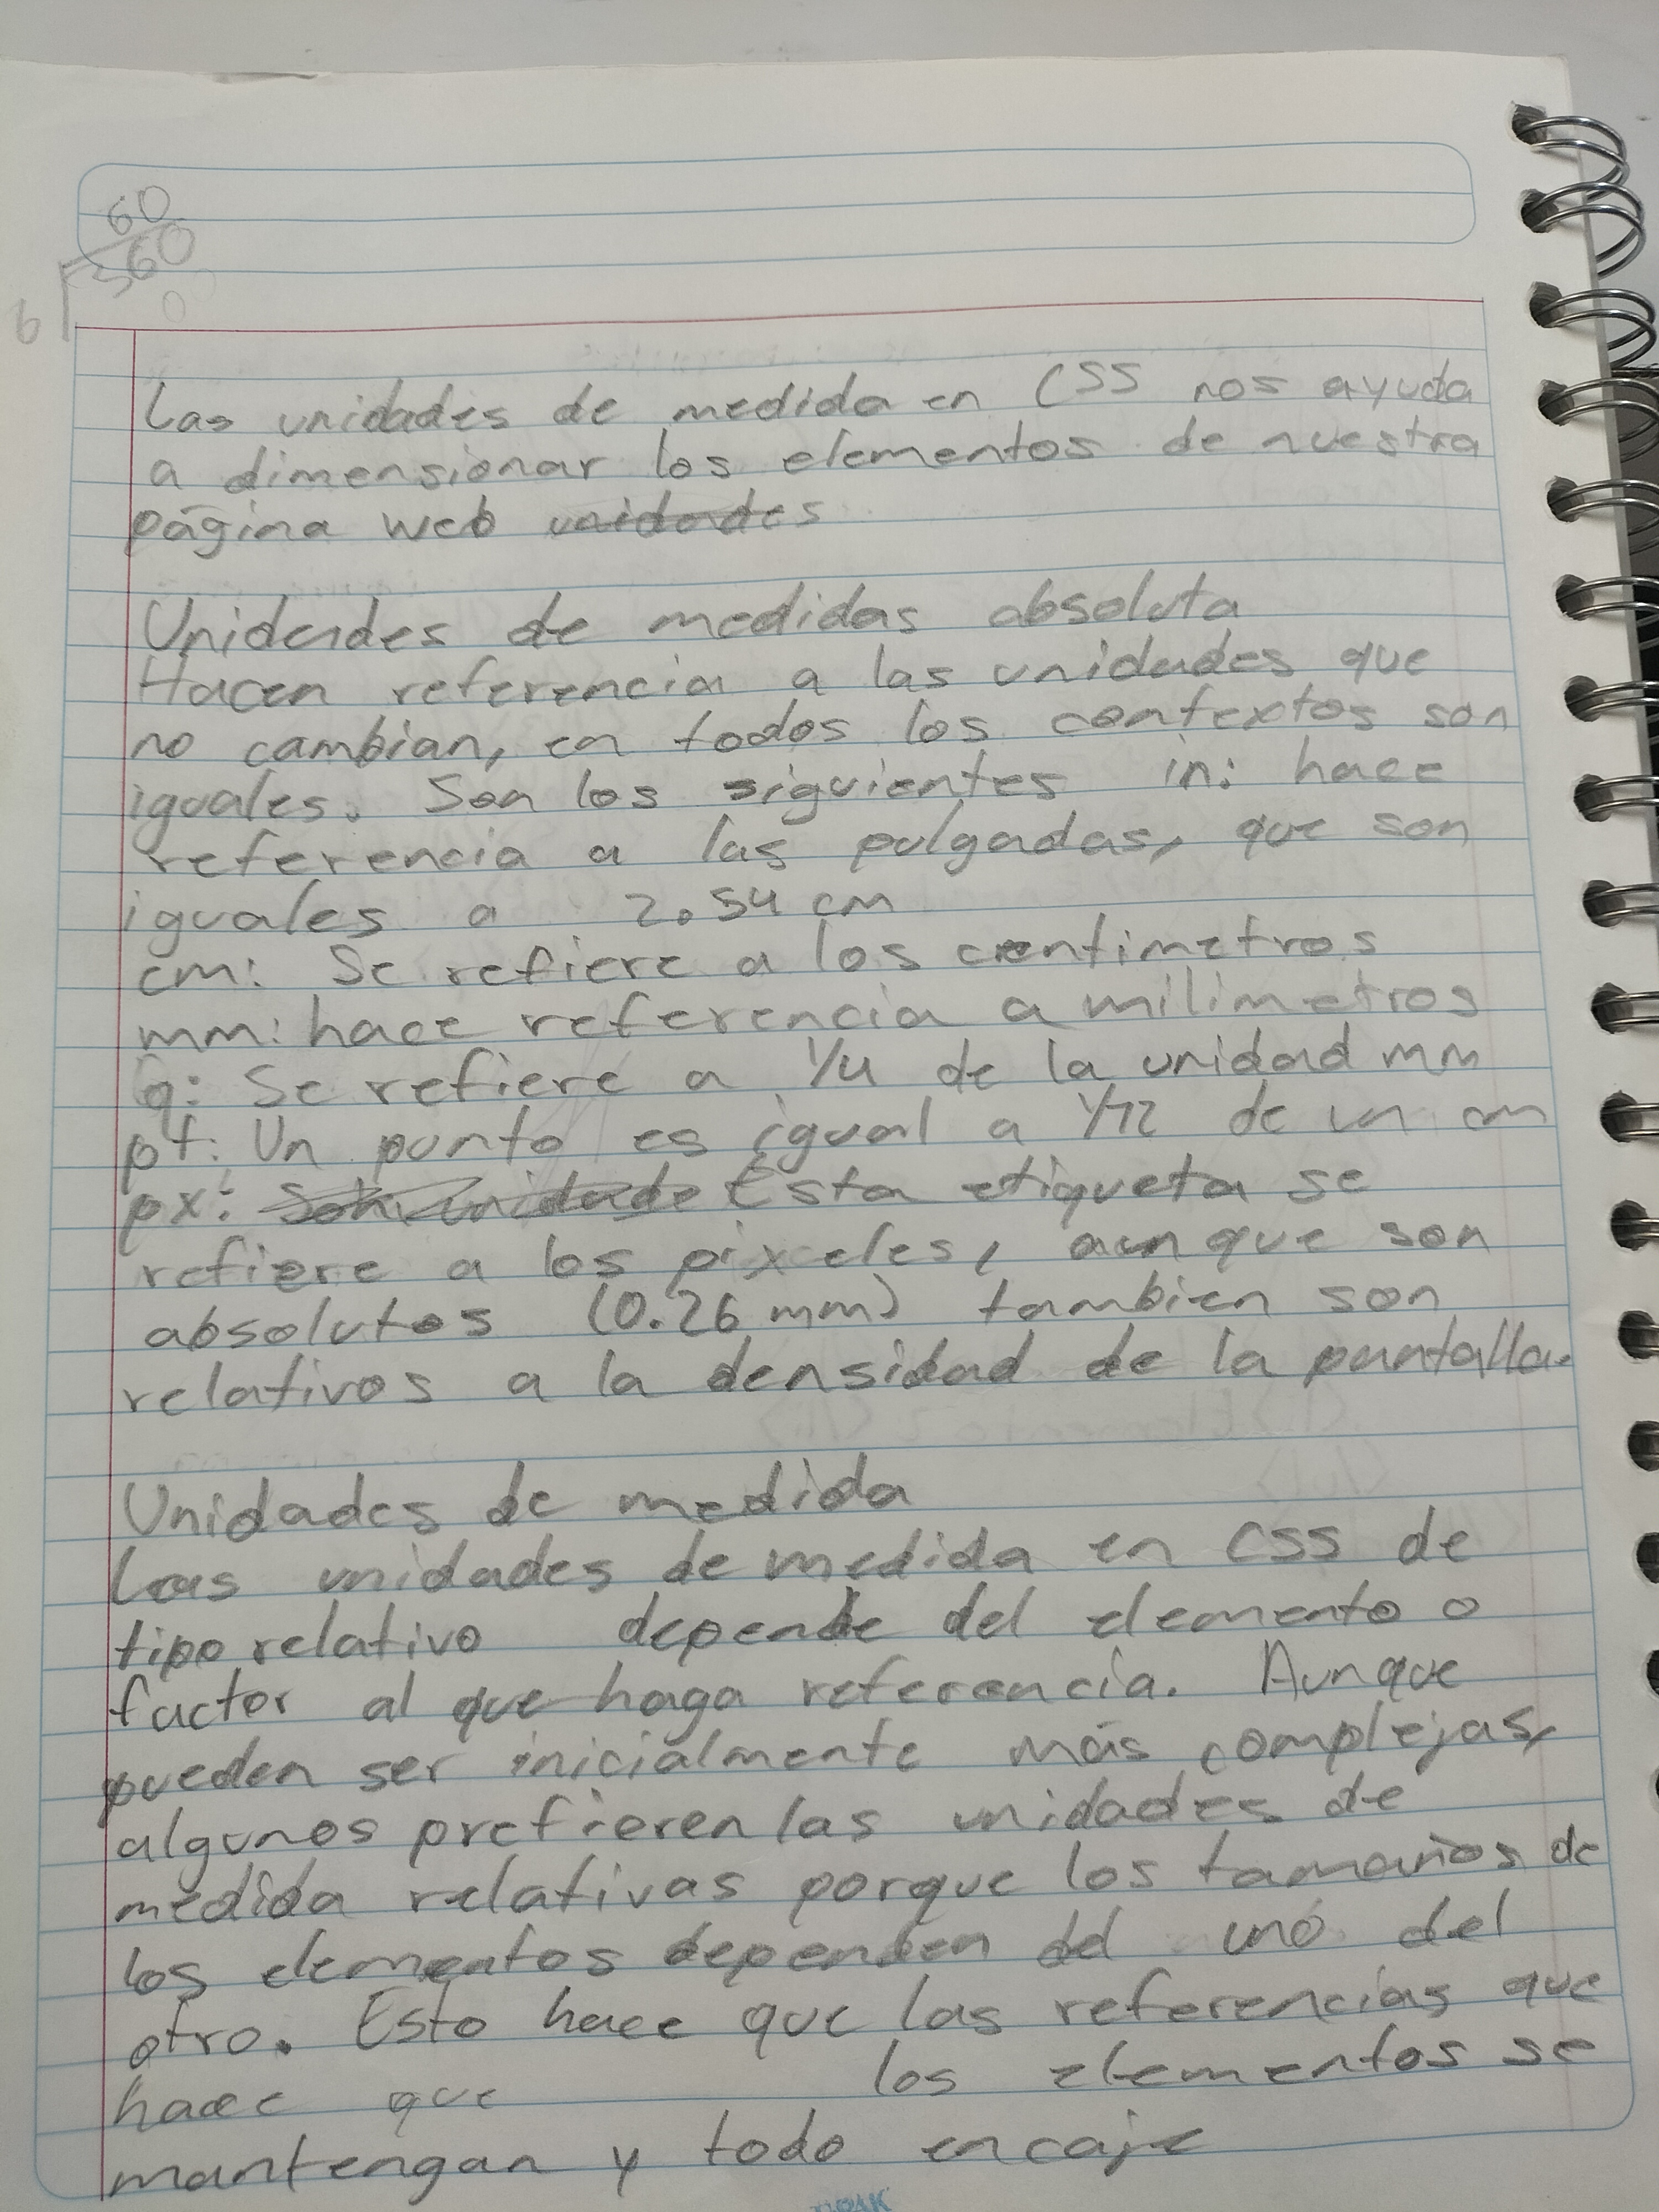 60
6 360
0
Las unidades de medida en CSS nos ayuda
a dimensionar los elementos de nuestra
página web unidades
Unidades de medidas absoluta
Hacen referencia a las unidades que
no cambian, en todos los contextos son
iguales. Son los siguientes in: hace
referencia a las pulgadas, que son
iguales a 2.54 cm
cm: Se refiere a los centimetros
mm: hace referencia a milimetros
q: Se refiere a 1/4 de la unidad mm
pt: Un punto es igual a 1/72 de un cm
px: Esta etiqueta se
refiere a los pixceles, aunque son
absolutos (0.26 mm) tambien son
relativos a la densidad de la pantalla.
Unidades de medida
Las unidades de medida en CSS de
tipo relativo depende del elemento o
factor al que haga referencia. Aunque
pueden ser inicialmente más complejas,
algunos prefieren las unidades de
medida relativas porque los tamaños de
los elementos dependen del uno del
otro. Esto hace que las referencias que
hace que los elementos se
mantengan y todo encaje